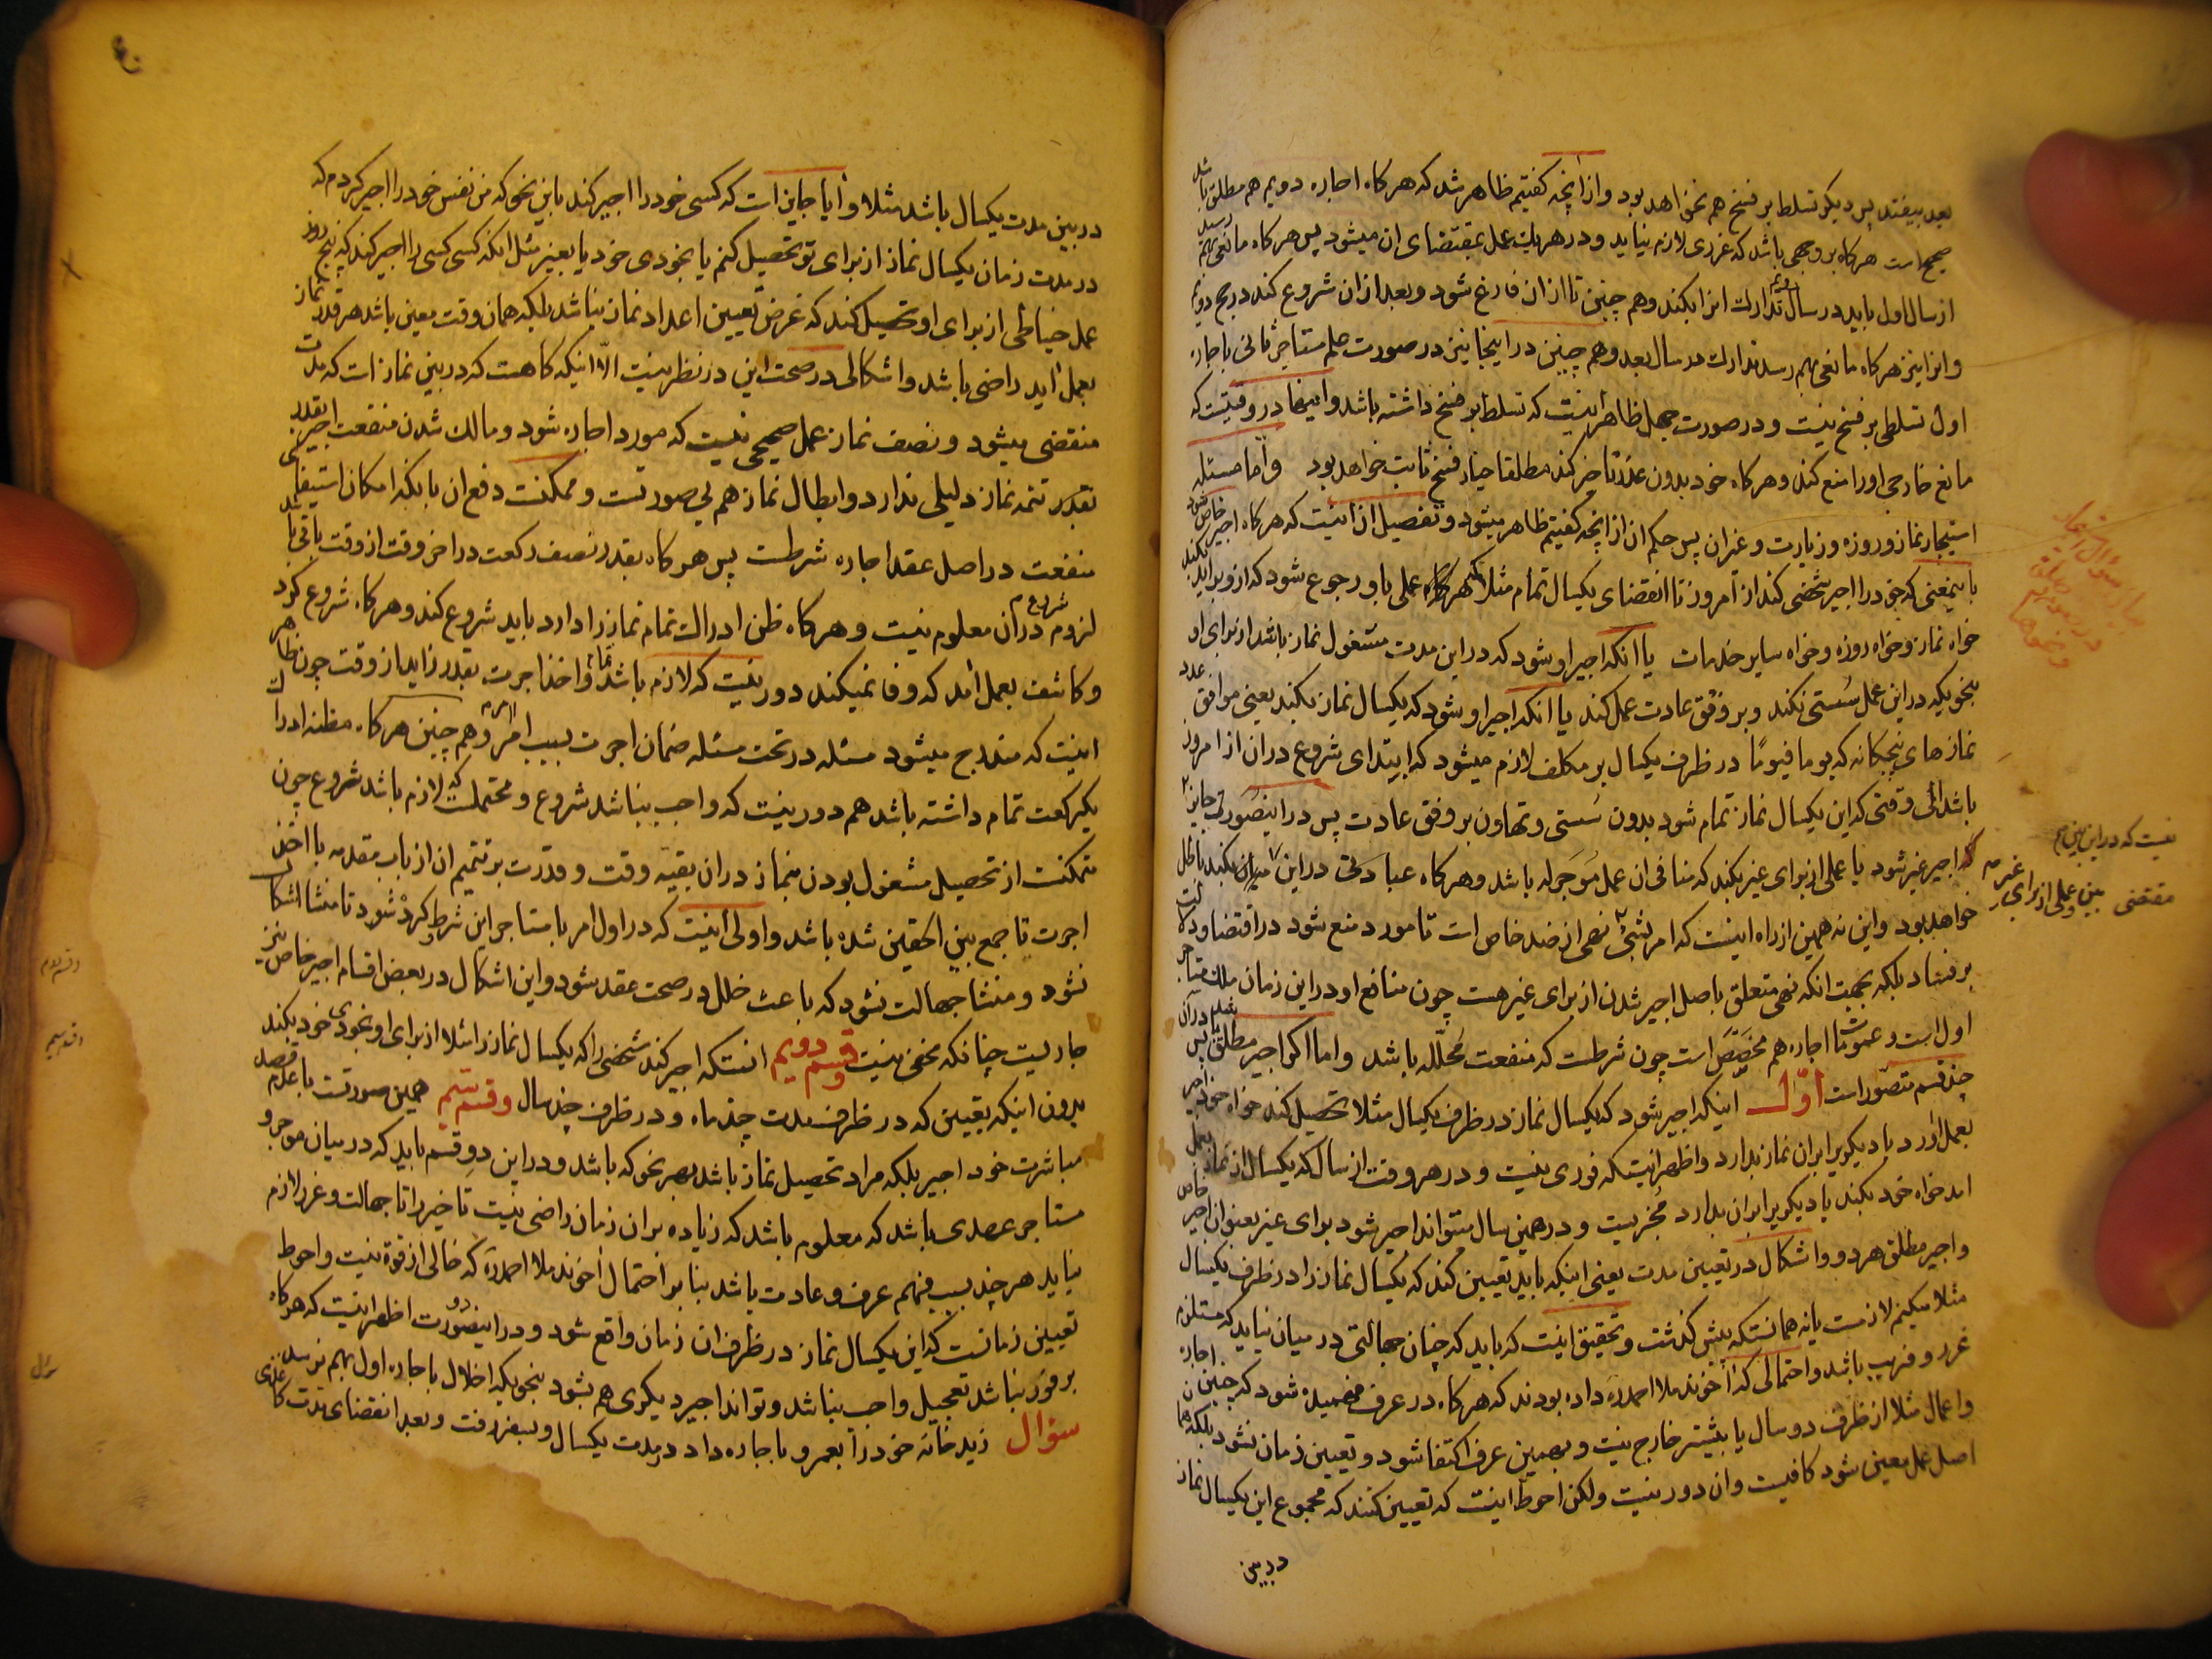 بعد بیفتد پس دیکر تسلط بر فسخ هم نخواهد بود و از انچه کفتیم ظاهر شد که هرکاه اجاره دویم هم مطلق باشد
صحیح است هرکاه بر وجهی باشد که غرری لازم نیاید و در هر یک عمل بمقتضای ان میشود پس هرکاه مانعی بهم رسد
از سال اول باید در سال دویم تدارک انرا بکند و هم چنین تا از ان فارغ شود و بعد از ان شروع کند در حج دویم
و انرا نیز هرکاه مانعی بهم رسد تدارک در سال بعد و هم چنین در اینجا نیز در صورت علم مستاجر ثانی باجاره
اول تسلطی بر فسخ نیست و در صورت جهل ظاهر اینست که تسلط بر فسخ داشته باشد و اینها در وقتیست که
مانع خارجی او را منع کند و هرکاه خود بدون عذر تاخیر کند مطلقا خیار فسخ ثابت خواهد بود و اما مسئله
استیجار نماز و روزه و زیارت و غیر ان پس حکم ان از انچه کفتیم ظاهر میشود و تفصیل ان اینست که هرکاه اجیر خاص شود
باینمعنی که خود را اجیر شخصی کند از امروز تا انقضای یکسال تمام مثلا که هر عملی باو رجوع شود که از او براید بکند
خواه نماز و خواه روزه و خواه سایر خدمات یا انکه اجیر او شود که در این مدت مشغول نماز باشد از برای او
بنحویکه در این عمل سستی نکند و بر وفق عادت عمل کند یا انکه اجیر او شود که یکسال نماز بکند یعنی موافق عدد
نمازهای پنجکانه که یوما فیوما در ظرف یکسال بر مکلف لازم میشود که ابتدای شروع در ان از امروز
باشد الی وقتی که این یکسال نماز تمام شود بدون سستی و تهاون بر وفق عادت پس در اینصورت جایز
نیست که در این بین
که اجیر غیر شود یا عملی از برای غیر بکند که منافی ان عمل موجر له باشد و هرکاه عبادتی در این بکند باطل
خواهد بود و این نه همین از راه اینست که امر بشئ نهی از ضد خاص است تا مورد منع شود در اقتضا و دلالت
بر فساد بلکه بجهت انکه نهی متعلق باصل اجیر شدن از برای غیر هست چون منافع او در این زمان ملک مستاجر
اول است و عمومات اجاره هم مخصص است چون شرطست که منفعت محلله باشد و اما اکر اجیر مطلق باشد پس در ان
چند قسم متصور است اول اینکه اجیر شود که یکسال نماز در ظرف یکسال مثلا تحصیل کند خواه خود اجیر
بعمل اورد یا دیکریرا بر ان نماز بدارد و اظهر اینست که فوری نیست و در هر وقت از سال که یکسال از نماز بعمل
اید خواه خود بکند یا دیکریرا بر ان بدارد مجزیست و در همین سال میتواند اجیر شود برای غیر بعنوان اجیر خاص
و اجیر مطلق هر دو و اشکال در تعیین مدت یعنی اینکه باید تعیین کند که یکسال نماز را در ظرف یکسال
مثلا میکنم لازمست یا نه همانستکه پیش کذشت و تحقیق اینست که باید که چنان جهالتی در میان نیاید که مستلزم
غرر و فریب باشد و احتمالی که اخوند ملا احمد ره داده بودند که هرکاه در عرف فهمیده شود که چنین اجاره
و اعمال مثلا از ظرف دو سال یا بیشتر خارج نیست و بهمین عرف اکتفا شود و تعیین زمان نشود بلکه همان
اصل عمل معین شود کافیست و ان دور نیست ولکن احوط اینست که تعیین کنند که مجموع این یکسال نماز
در بین
در بین مدت یکسال باشد مثلا و ایا جایز است که کسی خود را اجیر کند باین نحو که من نفس خود را اجیر کردم که
در مدت زمان یکسال نماز از برای تو تحصیل کنم یا بخودی خود یا بغیر مثل انکه کسی کسی را اجیر کند که پنج روز
عمل خیاطی از برای او تحصیل کند که غرض تعیین اعداد نماز نباشد بلکه همان وقت معین باشد هر قدر نماز
بعمل اید راضی باشد و اشکالی در صحت این در نظر نیست الا اینکه کاهست که در بین نماز است که مدت
منقضی میشود و نصف نماز عمل صحیحی نیست که مورد اجاره شود و مالک شدن منفعت اجیر بقدر
بقدر تتمه نماز دلیلی ندارد و ابطال نماز هم بی صورتست و ممکنست دفع ان بانکه امکان استیفای
منفعت در اصل عقد اجاره شرطست پس هرکاه بقدر نصف رکعت در اخر وقت از وقت باقی باشد
لزوم شروع در ان معلوم نیست و هرکاه ظن ادراک تمام نماز را دارد باید شروع کند و هرکاه شروع کرد
و کاشف بعمل امد که وفا نمیکند دور نیست که لازم باشد تمام و اخذ اجرت بقدر زاید از وقت چون ظاهر
اینست که مندرج میشود مسئله در تحت مسئله ضمان اجرت بسبب امر و هم چنین هرکاه مظنه ادراک
یکرکعت تمام داشته باشد هم دور نیست که واجب نباشد شروع و محتملست که لازم باشد شروع چون
متمکنست از تحصیل مشغول بودن بنماز در ان بقیه وقت و قدرت بر تتمیم ان از باب مقدمه با اخذ
اجرت تا جمع بین الحقین شده باشد و اولی اینست که در اول امر با مستاجر این شرط کرده شود تا منشا اشکال
نشود و منشا جهالت نشود که باعث خلل در صحت عقد شود و این اشکال در بعض اقسام اجیر خاص نیز
جاریست چنانکه مخفی نیست و قسم دویم انستکه اجیر کند شخصی را که یکسال نماز را مثلا از برای او بخودی خود بکند
بدون اینکه تعیین که در ظرف مدت چند ماه و در ظرف چند سال و قسم سیم همین صورتست با عدم قصد
مباشرت خود اجیر بلکه مراد تحصیل نماز باشد بهر نحو که باشد و در این دو قسم باید که در میان موجر و
مستاجر عهدی باشد که معلوم باشد که زیاده بر ان زمان راضی نیست تاخیر را تا جهالت و غرر لازم
نیاید هر چند بسبب فهم عرف و عادت باشد بنا بر احتمال اخوند ملا احمد ره که خالی از قوة نیست و احوط
تعیین زمانست که این یکسال نماز در ظرف ان زمان واقع شود و در اینصورت اظهر اینست که هرکاه
بر فور نباشد تعجیل واجب نباشد و تواند اجیر دیکری هم بشود بنحویکه اخلال باجاره اول بهم نرسد
سؤال زید خانه خود را بعمرو باجاره داد در مدت یکسال و بسفر رفت و بعد انقضای مدت